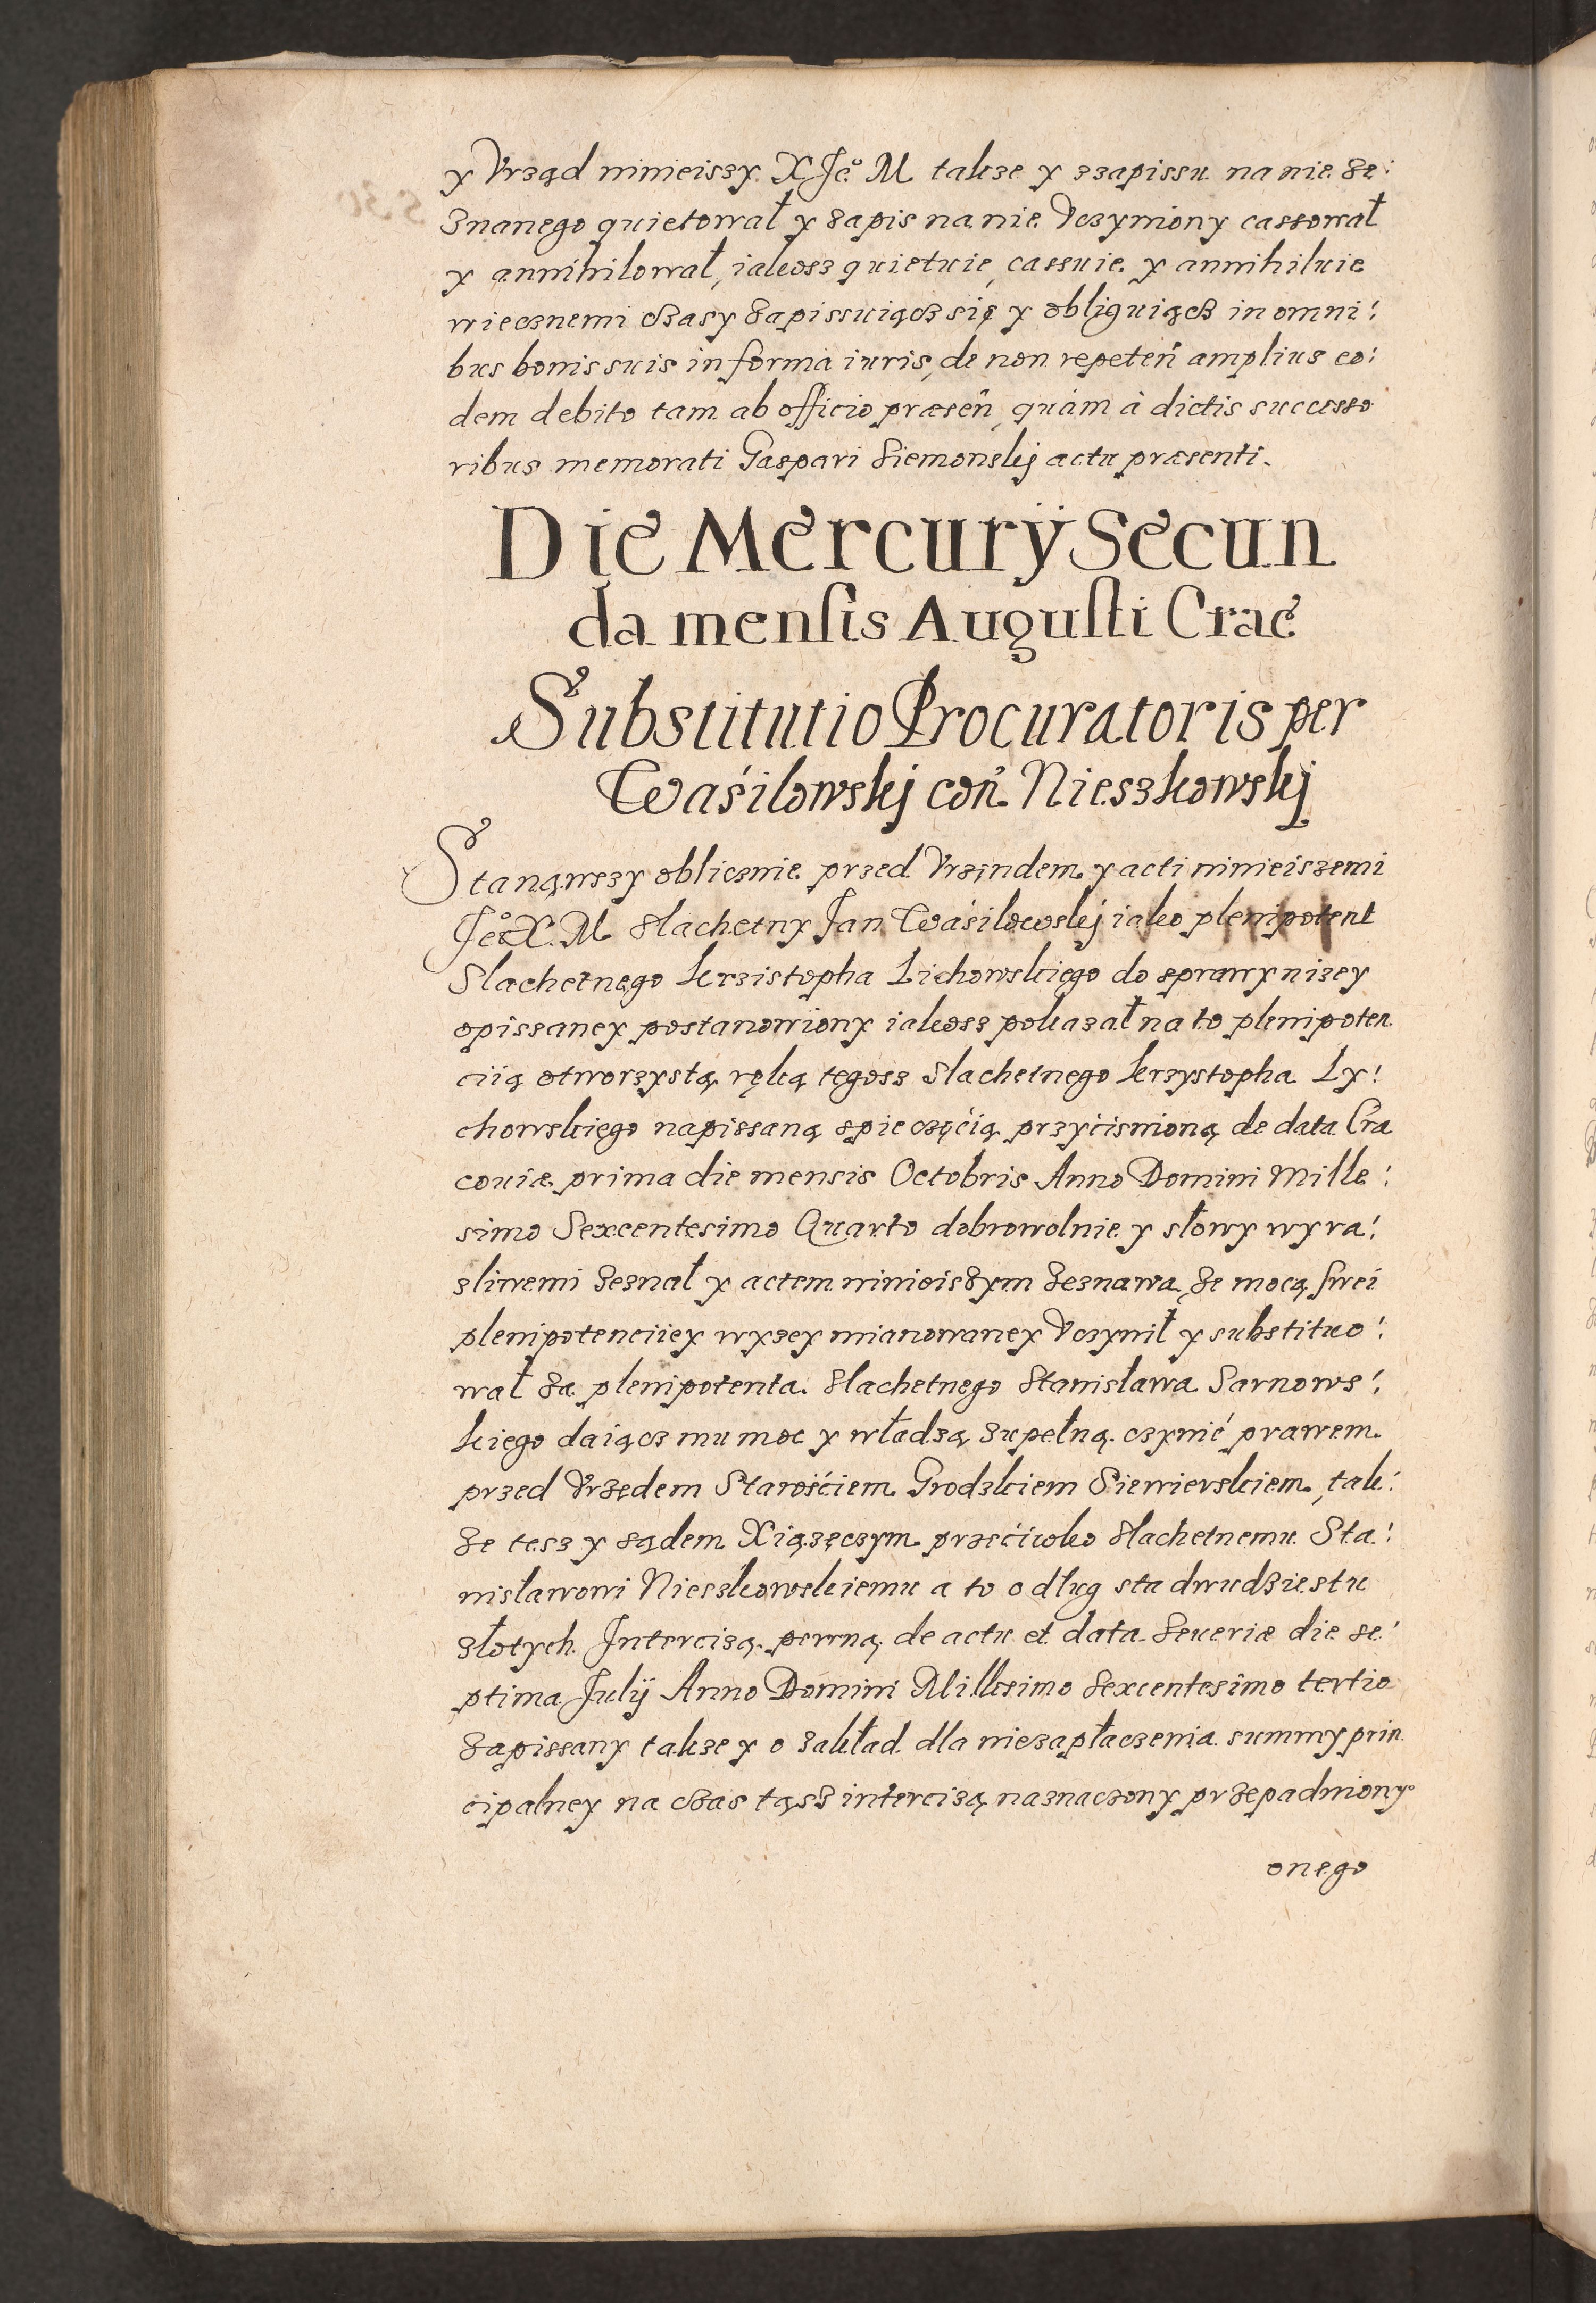 y Vrząd ninieiszy X Je° M takze y zzapissu na nie ze:
znanego quietował y zapis na nie Vczyniony cassował
y annihilował, iakosz quietuie, cassuie y annihiluie
wiecznemi czasy zapissuiącz się y obliguiącz in omni:
bus bonis suis in forma iuris, de non repeteñ amplius eo:
dem debito tam ab officio præseñ, quàm à dictis successo
ribus memorati Gaspari Siemonskj actu præsenti.
Die Mercurÿ Secun
da mensis Augusti Crac
Substitutio Procuratoris per
Waśilowskj coñ Nieszkowskj
Stanąwszy oblicznie przed Vrzindem y acti ninieiszemi
Je° X. M Slachetny Jan Waśilowskj iako plenipotent
Slachetnego Krzistopha Lichowskiego do sprawy nizey
opissaney postanowiony iakosz pokazał na to plenipoten
ciią otworzystą ręką tegosz Slachetnego Krzystopha Ly:
chowskiego napissaną spieczęćią przyćisnioną de data Cra
couiæ prima die mensis Octobris Anno Domini Mille:
simo Sexcentesimo Quarto dobrowolnie y słowy wyra:
zliwemi zeznal y actem ninieiszym zeznawa, ze mocą swei
plenipotenciiey wyzey mianowaney Vczynił y substituo:
wał za plenipotenta Slachetnego Stanisława Sarnows:
kiego daiącz mu moc y władzą zupełną czynić prawem
przed Vrzędem Starośćiem Grodzkiem Siewierskiem, tak:
ze tesz y sądem Xiązęczym przećiwko Slachetnemu Sta:
nisławowi Nieszkowskiemu a to o dług sta dwudziestu
złotych Intercizą pewną de actu et data Seueriæ die se:
ptima Julÿ Anno Domini Millesimo Sexcentesimo tertio
zapissany takze y o zakład dla niezapłaczenia summy prin
cipalney na czas tąsz intercizą naznaczony przepadniony
onego